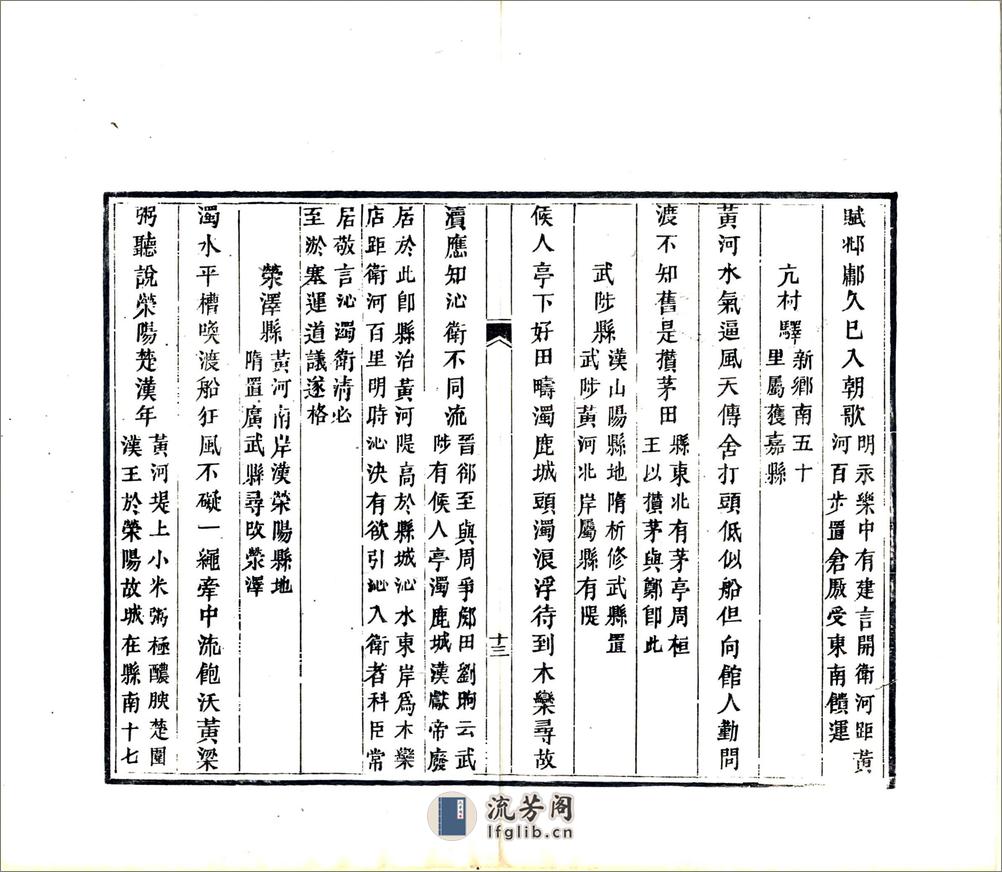 賦邶鄘久已入朝歌明永樂中有建言開衛河距黃
河百步置倉厫受東南饋運
亢村驛新鄉南五十
里屬獲嘉縣
黃河水氣逼風天傳舍打頭低似船但向館人勤問
渡不知舊是攢茅田縣東北有茅亭周桓
王以攢茅與鄭卽此
武陟縣漢山陽縣地隋析修武縣置
武陟黃河北岸屬縣有隄
候人亭下好田疇濁鹿城頭濁浪浮待到木欒尋故
十三
瀆應知沁衛不同流晉郤至與周爭鄇田劉昫云武
陟有候人亭濁鹿城漢獻帝廢
居於此卽縣治黃河隄高於縣城沁水東岸爲木欒
店距衛河百里明時沁決有欲引沁入衛者科臣常
居敬言沁濁衛清必
至淤塞運道議遂格
滎澤縣黃河南岸漢滎陽縣地
隋置廣武縣尋改滎澤
濁水平槽喚渡船狂風不礙一繩牽中流飽沃黃粱
粥聽說滎陽楚漢年黃河堤上小米粥極醲腴楚圍
漢王於滎陽故城在縣南十七
流芳阁
lfglib.cn